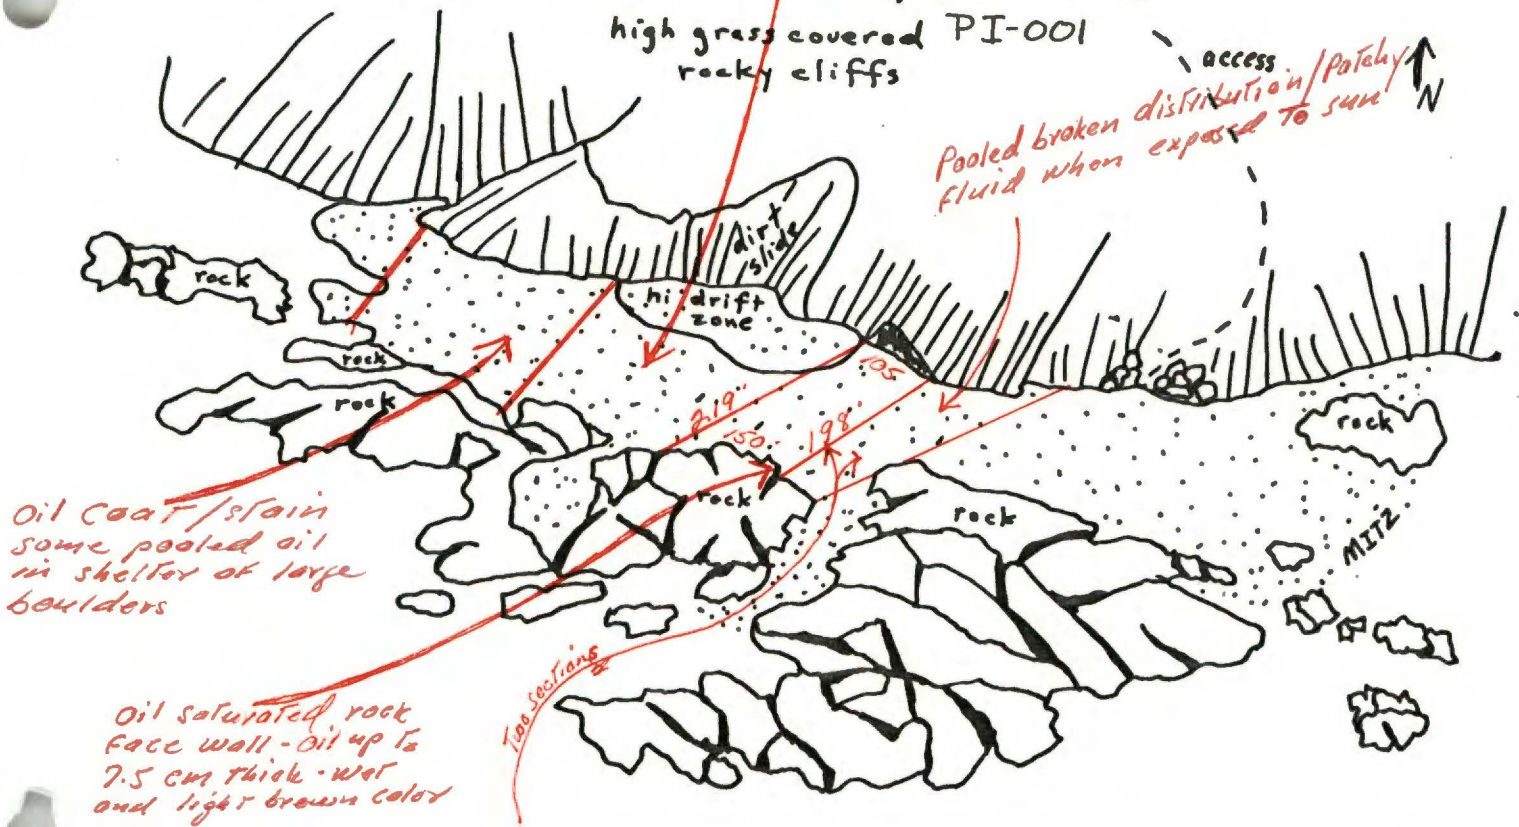 high grass covered PI-001
rocky cliffs
access
N
Pooled broken distribution/Patchy
fluid when exposed to sun
dirt
slide
rock
hi drift
zone
rock
rock
105
219"
150"
198"
rock
rock
rock
MITZ
Oil coat/stain
some pooled oil
in shelter of large
boulders
Two sections
Oil saturated rock
face wall - oil up to
7.5 cm thick - wet
and light brown color